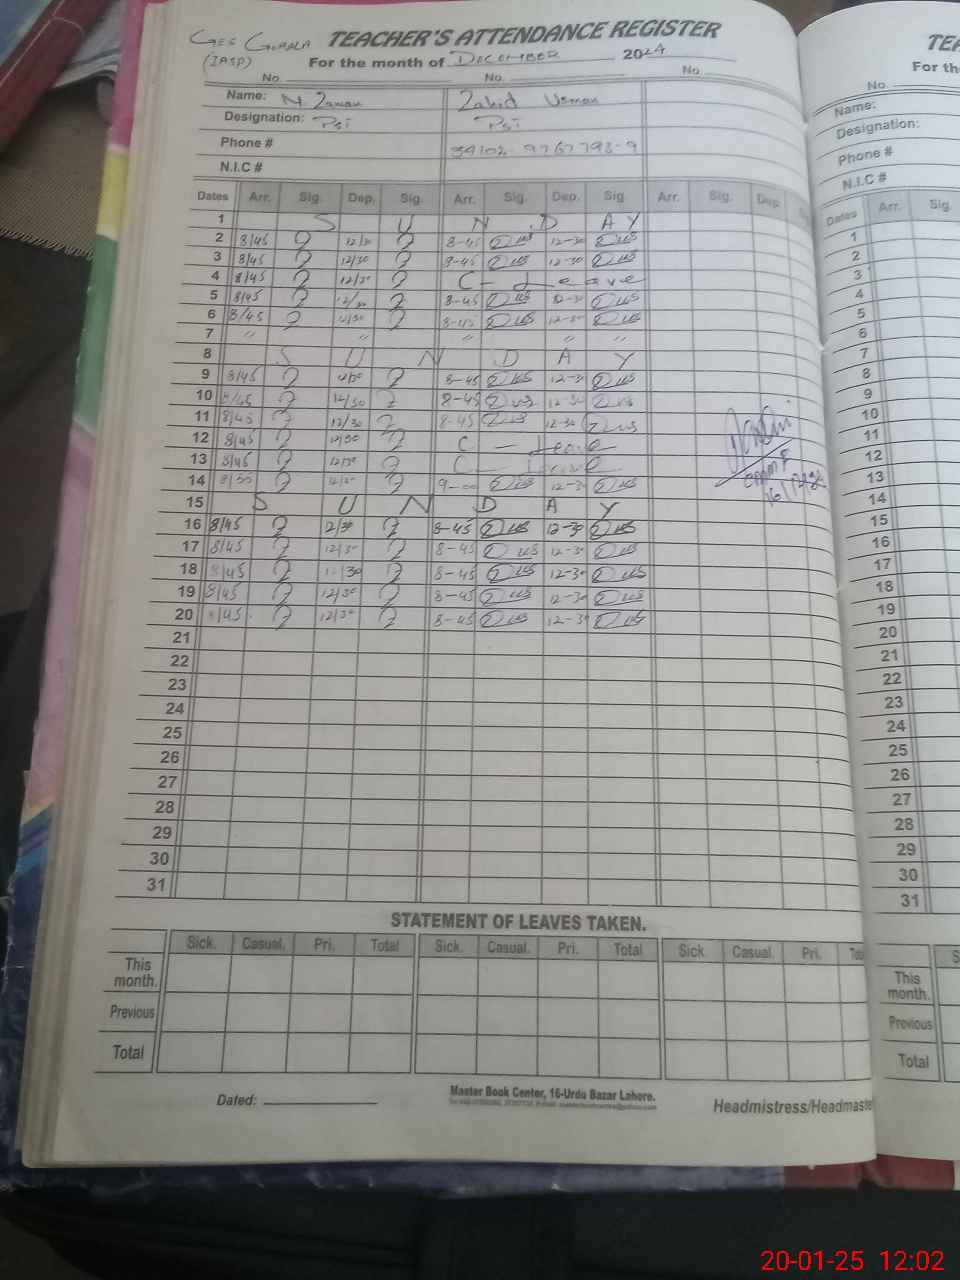 GES GOHALA TEACHER'S ATTENDANCE REGISTER
(IASP) For the month of DECEMBER 2024
No. No. No.
Name: N. Zaman Zahid Usman
Designation: PST PST
Phone #
N.I.C #
Dates Arr. Sig. Dep. Sig. Arr. Sig. Dep. Sig. Arr. Sig. Dep.
1 S U N D A Y
2 8/45 12/30 8-45 12-30
3 8/45 12/30 8-45 12-30
4 8/45 12/30 C - Leave
5 8/45 12/30 8-45 12-30
6 8/45 12/30 8-45 12-30
7 " " " " "
8 S U N D A Y
9 8/45 12/30 8-45 12-30
10 8/45 12/30 8-45 12-30
11 8/45 12/30 8-45 12-30
12 8/45 12/30 C - Leave
13 8/45 12/30 C - Leave
14 12/30 9-00 12-30
15 S U N D A Y
16 8/45 12/30 8-45 12-30
17 8/45 12/30 8-45 12-30
18 8/45 12/30 8-45 12-30
19 8/45 12/30 8-45 12-30
20 8/45 12/30 8-45 12-30
21
22
23
24
25
26
27
28
29
30
31
STATEMENT OF LEAVES TAKEN.
Sick. Casual. Pri. Total Sick. Casual. Pri. Total Sick. Casual. Pri.
This month.
Previous
Total
Dated:
Master Book Center, 16-Urdu Bazar Lahore.
Headmistress/Headmaste
No.
Name:
Designation:
Phone #
N.I.C #
Dates Arr. Sig.
1
2
3
4
5
6
7
8
9
10
11
12
13
14
15
16
17
18
19
20
21
22
23
24
25
26
27
28
29
30
31
This month.
Previous
Total
20-01-25 12:02